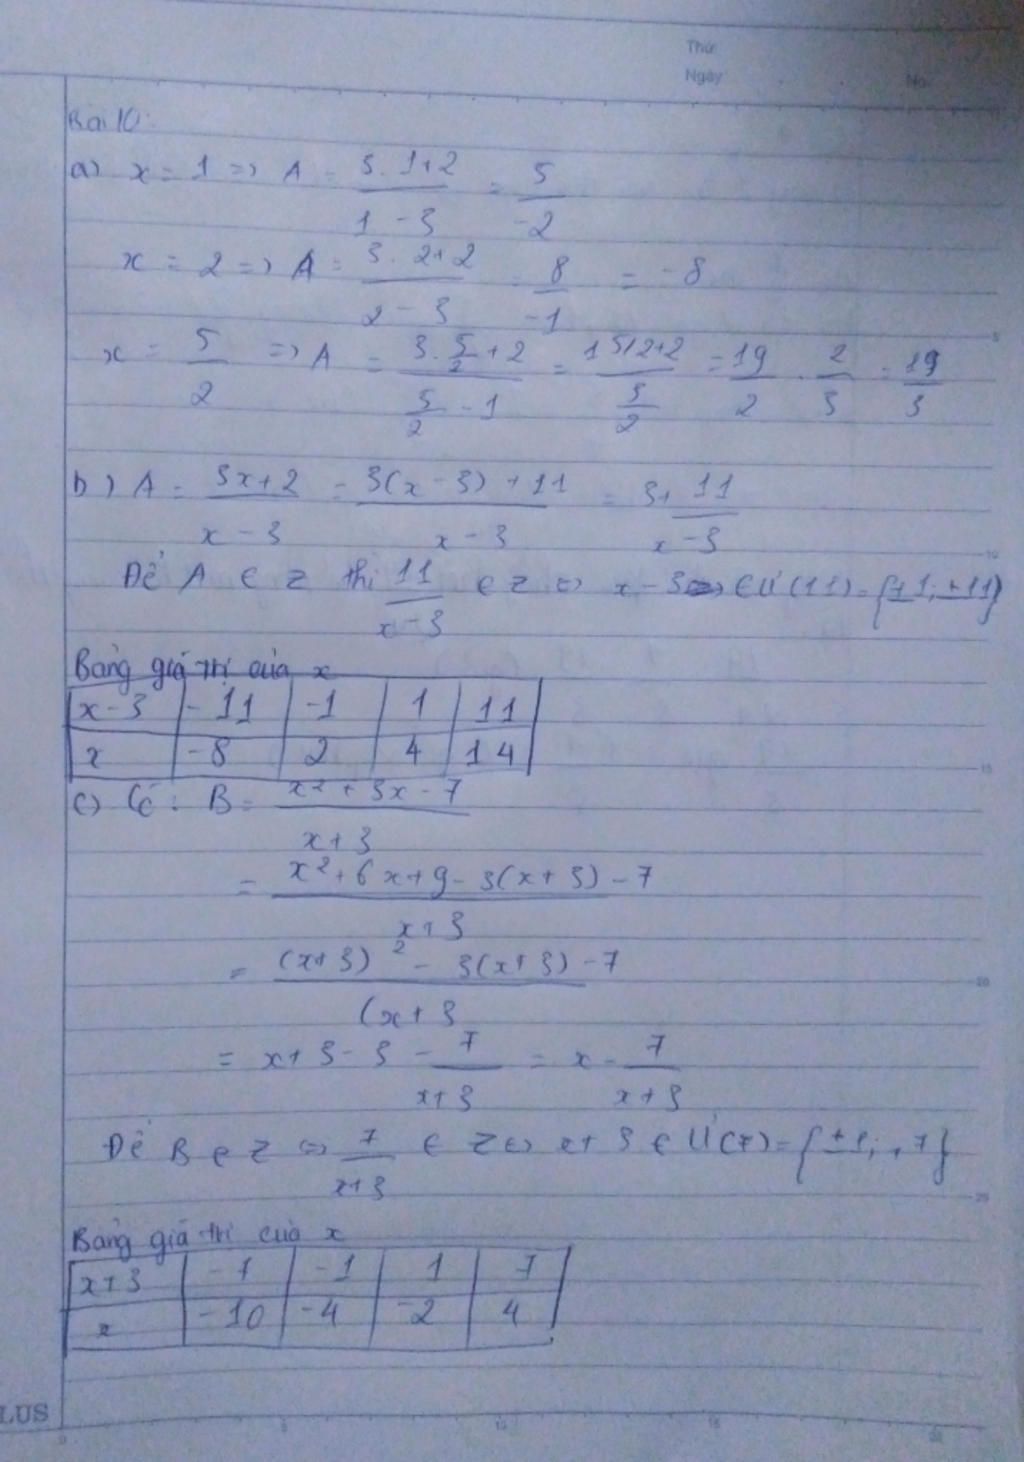 Thứ
Ngày No.
Bài 10:
a) x = 1 => A = 3.1+2 / 1-3 = 5 / -2
x = 2 => A = 3.2+2 / 2-3 = 8 / -1 = -8
x = 5/2 => A = 3.5/2+2 / 5/2-1 = 15/2+2 / 3/2 = 19/2 . 2/3 = 19/3
b) A = 3x+2 / x-3 = 3(x-3)+11 / x-3 = 3+ 11 / x-3
Để A ∈ Z thì 11 / x-3 ∈ Z <=> x-3 ∈ Ư(11) = {±1; ±11}
Bảng giá trị của x
x-3 -11 -1 1 11
x -8 2 4 14
c) Có : B = x²+3x-7 / x+3
= x²+6x+9-3(x+3)-7 / x+3
= (x+3)² - 3(x+3) -7 / (x+3
= x+3-3 - 7 / x+3 = x - 7 / x+3
Để B ∈ Z <=> 7 / x+3 ∈ Z <=> x+3 ∈ Ư(7) = {±1; , 7}
Bảng giá trị của x
x+3 -7 -1 1 7
x -10 -4 -2 4
LUS